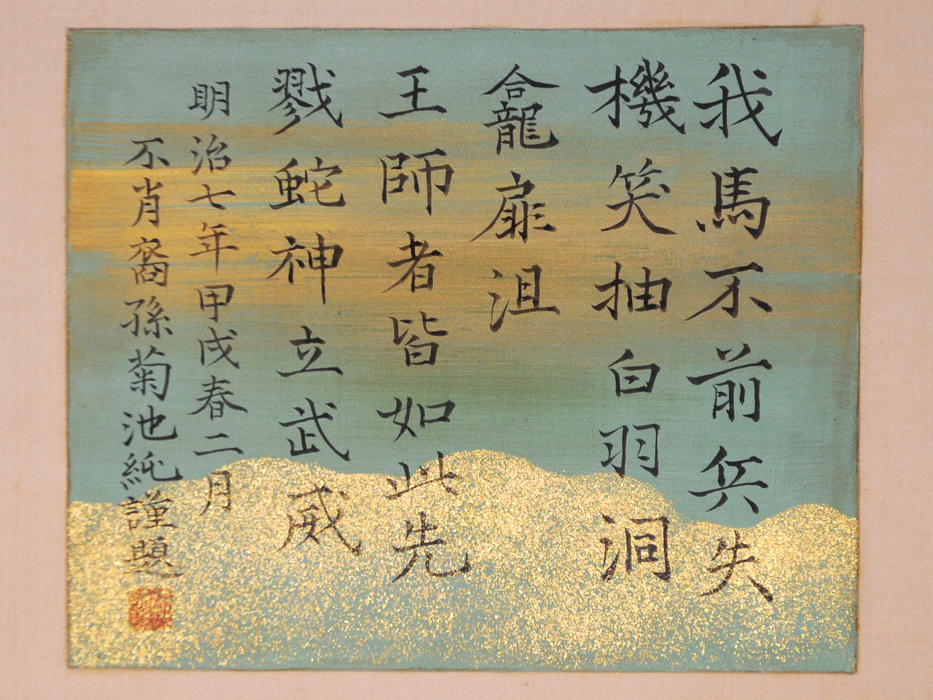 我馬不前兵失
機笑抽白羽洞
龕扉沮
王師者皆如此先
戮蛇神立武威
明治七年甲戌春二月
不肖裔孫菊池純謹題